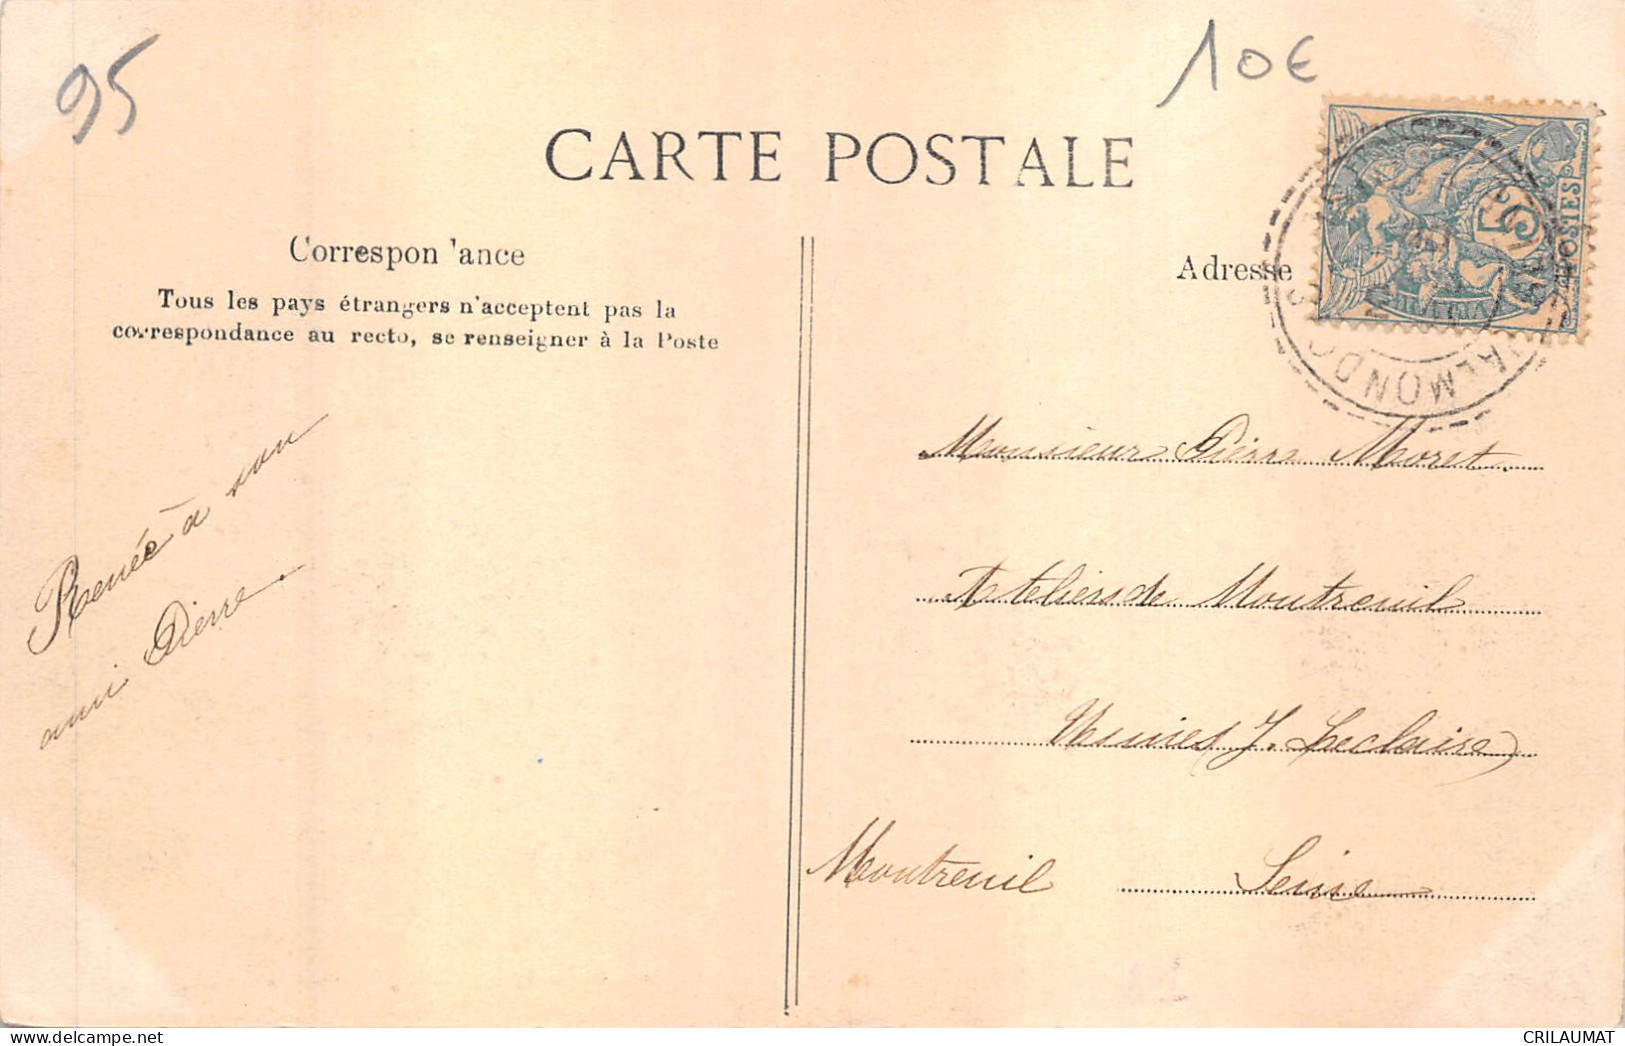 95
10€
CARTE POSTALE
Correspon'ance
Tous les pays étrangers n'acceptent pas la
correspondance au recto, se renseigner à la Poste
Adresse
5
POSTES
VALMONDOIS
Renée à son
ami Pierre.
Monsieur Pierre Moret.
Ateliers de Montreuil
Usines J. Leclaire
Montreuil Seine
delcampe.net
CRILAUMAT